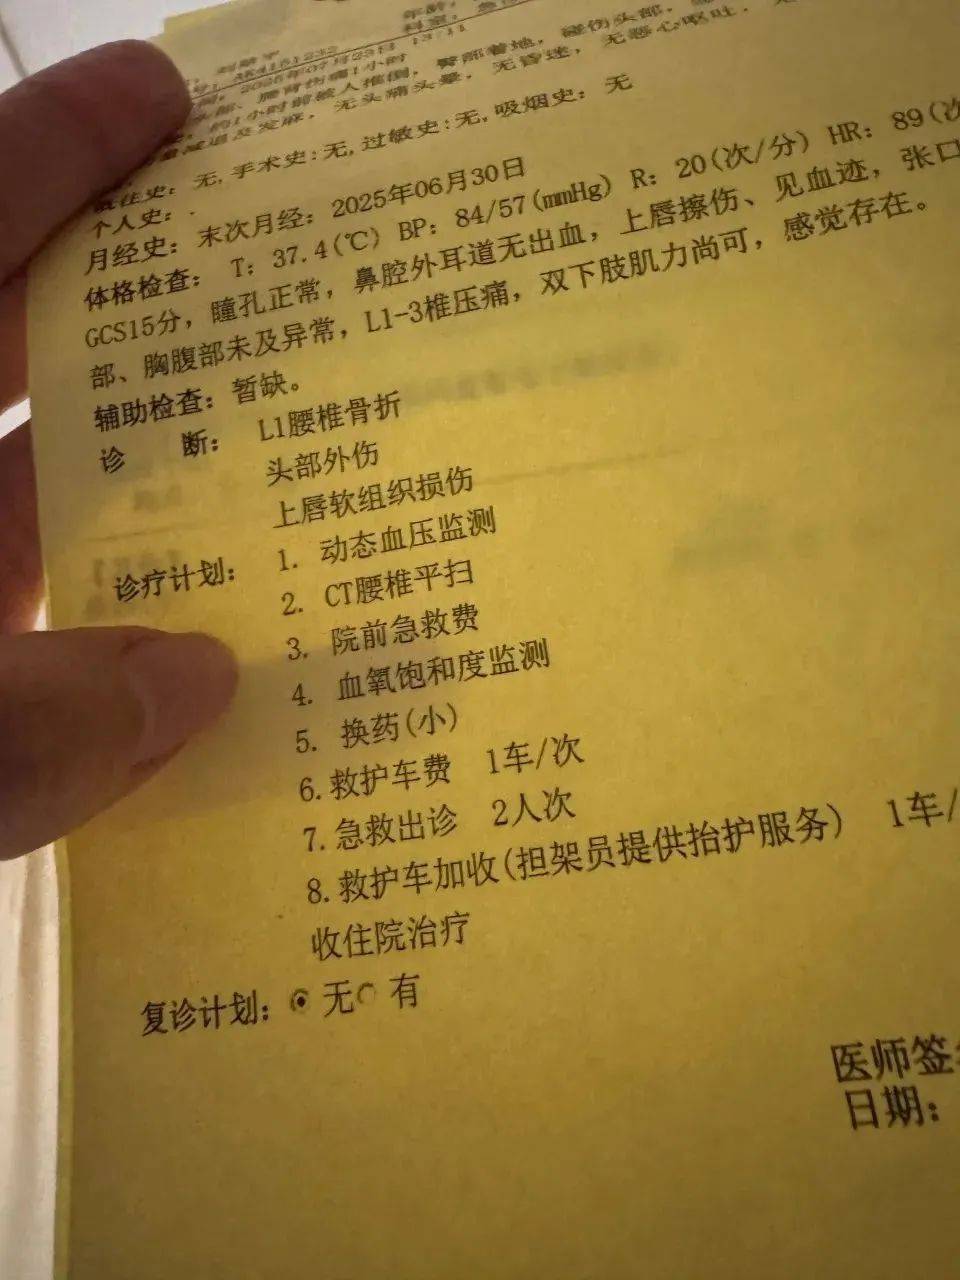 年龄：
科室：急
AK4151232
2025年07月23日 13:11
腰背伤痛1小时
约1小时前被人推倒，臀部着地，碰伤头部，
减退及发麻，无头痛头晕，无昏迷，无恶心呕吐，
既往史：无,手术史:无,过敏史:无,吸烟史：无
个人史：.
月经史：末次月经：2025年06月30日
体格检查： T：37.4(℃) BP：84/57(mmHg) R：20(次/分) HR：89(次
GCS15分，瞳孔正常，鼻腔外耳道无出血，上唇擦伤、见血迹，张口
部、胸腹部未及异常，L1-3椎压痛，双下肢肌力尚可，感觉存在。
辅助检查：暂缺。
诊 断： L1腰椎骨折
头部外伤
上唇软组织损伤
诊疗计划： 1. 动态血压监测
2. CT腰椎平扫
3. 院前急救费
4. 血氧饱和度监测
5. 换药(小)
6.救护车费 1车/次
7.急救出诊 2人次
8.救护车加收(担架员提供抬护服务) 1车/
收住院治疗
复诊计划： 无 有
医师签
日期：